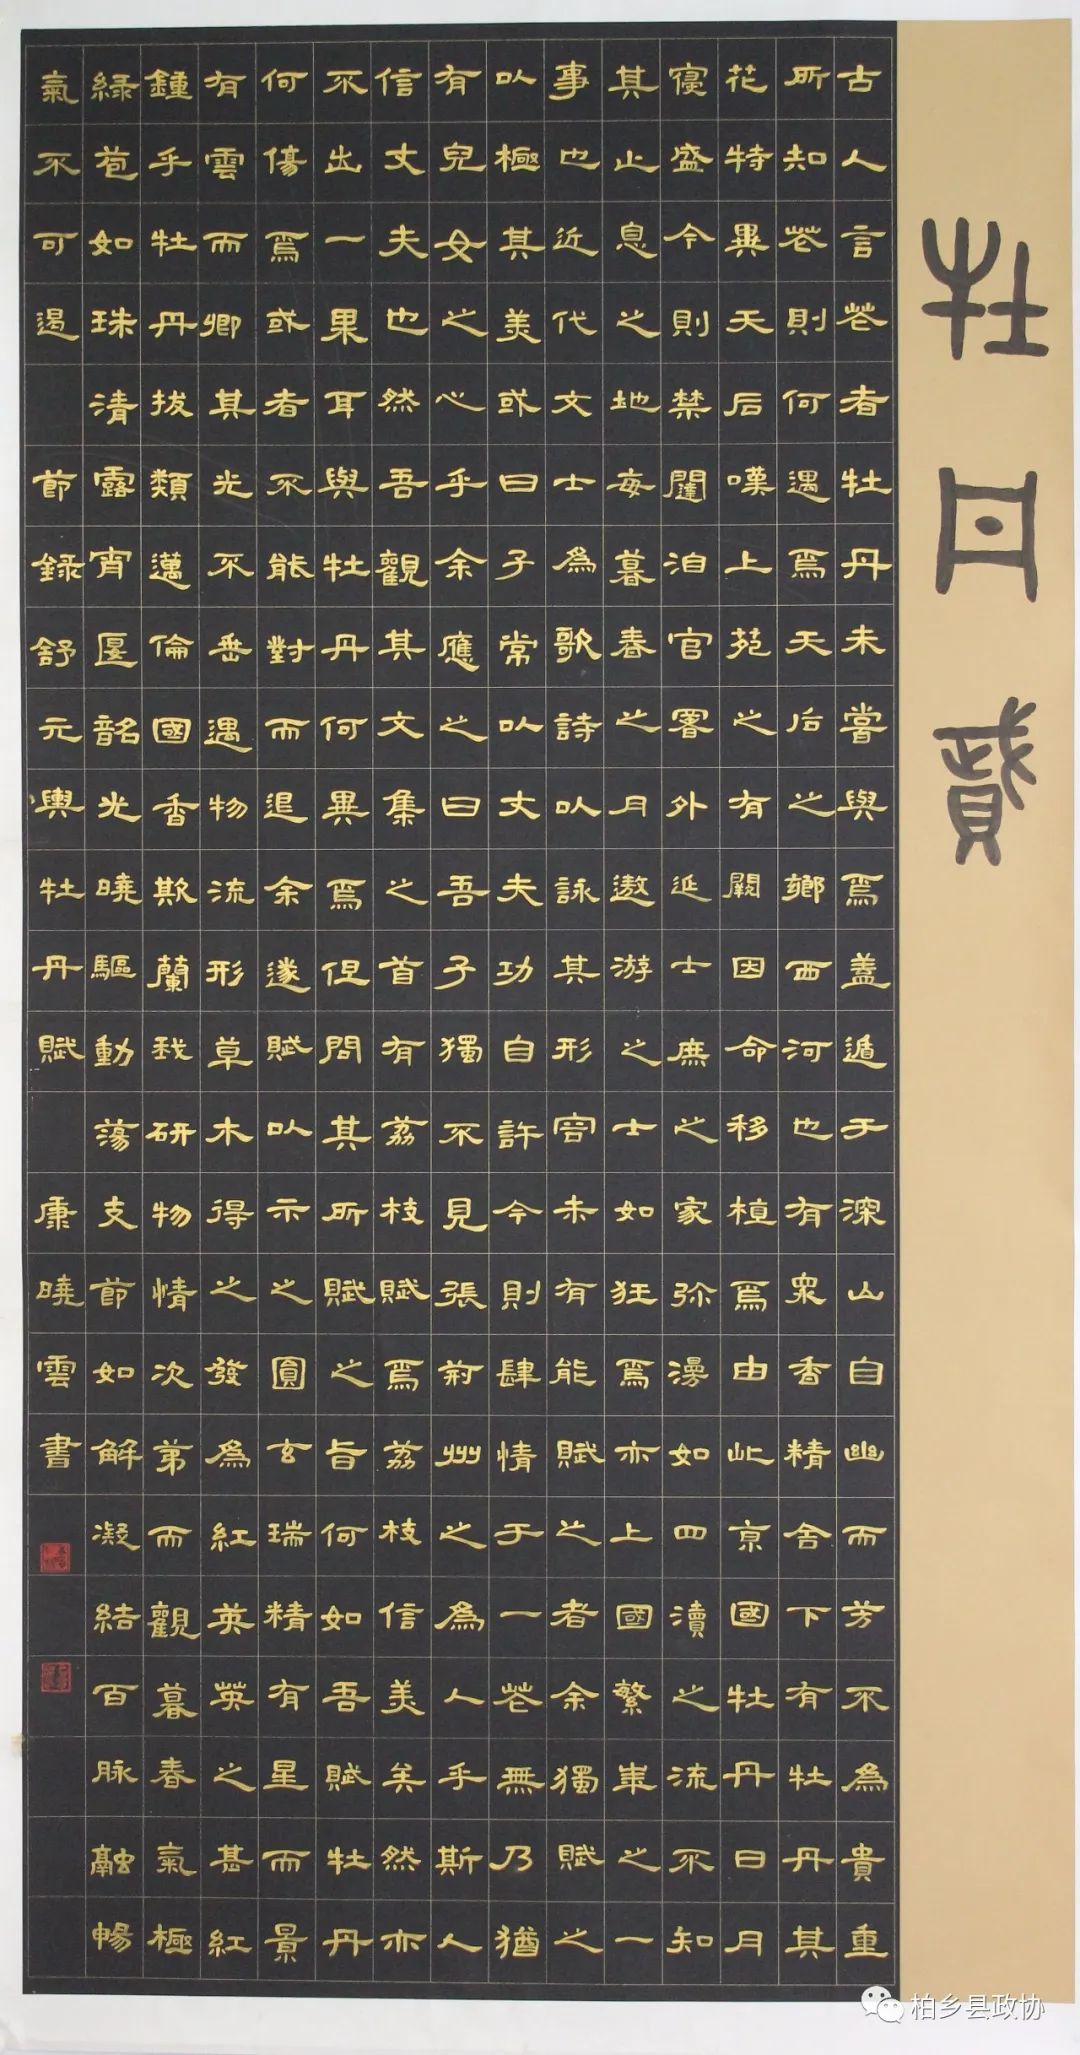 牡丹賦
古人言花者牡丹未嘗與焉蓋遁于深山自幽而芳不為貴重
所知花則何遇焉天后之鄉西河也有眾香精舍下有牡丹其
花特異天后嘆上苑之有闕因命移植焉由此京國牡丹日月
寖盛今則禁闥洎官署外延士庶之家弥漫如四瀆之流不知
其止息之地每暮春之月遨游之士如狂焉亦上國繁華之一
事也近代文士為歌詩以詠其形容未有能賦之者余獨賦之
以極其美或曰子常以丈夫功自許今則肆情于一花無乃猶
有兒女之心乎余應之曰吾子獨不見張荊州之為人乎斯人
信丈夫也然吾觀其文集之首有荔枝賦焉荔枝信美矣然亦
不出一果耳與牡丹何異焉但問其所賦之旨何如吾賦牡丹
何傷焉或者不能對而退余遂賦以示之圓玄瑞精有星而景
有雲而卿其光不垂遇物流形草木得之發為紅英英之甚紅
鍾乎牡丹拔類邁倫國香欺蘭我研物情次第而觀暮春氣極
綠苞如珠清露宵偃韶光曉驅動蕩支節如解凝結百脉融暢
氣不可遏 節錄舒元輿牡丹賦 康曉雲書
柏乡县政协